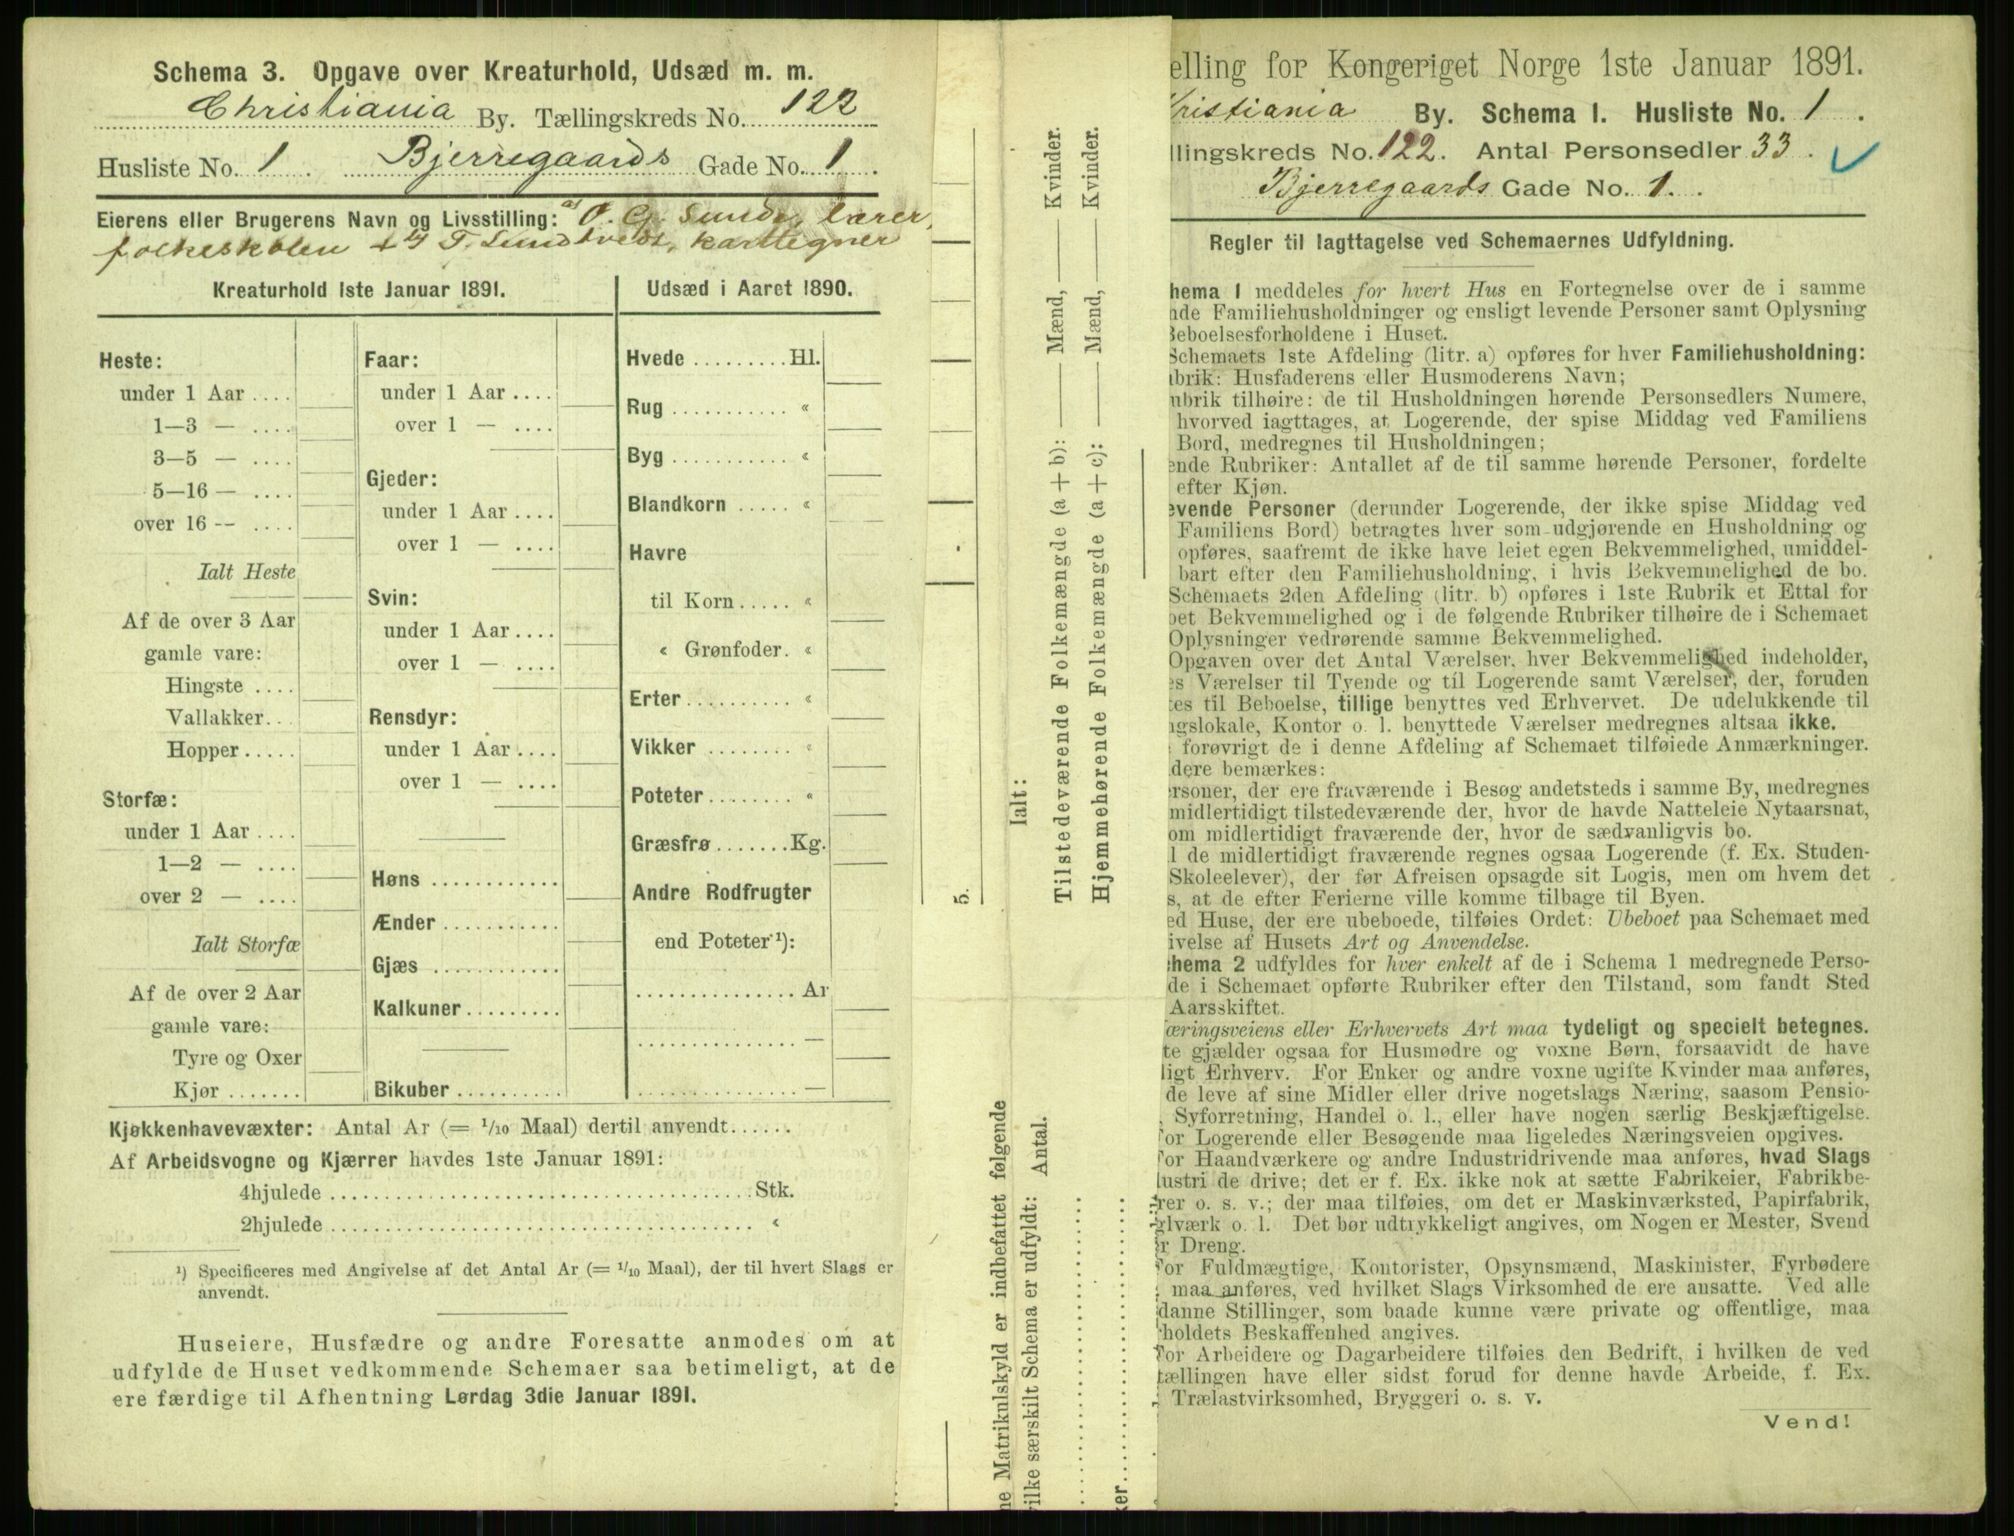 Schema 3. Opgave over Kreaturhold, Udsæd m. m.
Christiania By. Tællingskreds No. 122
Husliste No. 1. Bjerregaards Gade No. 1.
Eierens eller Brugerens Navn og Livsstilling: a) O. G. Sunde, lærer,
folkeskolen + b) T. Sundtvedt, karttegner
Kreaturhold 1ste Januar 1891.
Heste:
under 1 Aar ....
1—3 — ....
3—5 — ....
5—16 — ....
over 16 -- ....
Ialt Heste
Af de over 3 Aar
gamle vare:
Hingste ....
Vallakker...
Hopper .....
Storfæ:
under 1 Aar ....
1—2 — ....
over 2 — ....
Ialt Storfæ
Af de over 2 Aar
gamle vare:
Tyre og Oxer
Kjør .......
Faar:
under 1 Aar ....
over 1 — ....
Gjeder:
under 1 Aar ....
over 1 — ....
Svin:
under 1 Aar ....
over 1 — ....
Rensdyr:
under 1 Aar ....
over 1 — ....
Høns ............
Ænder ...........
Gjæs ............
Kalkuner.........
Bikuber ..........
Udsæd i Aaret 1890.
Hvede .........Hl.
Rug ........... «
Byg ........... «
Blandkorn ..... «
Havre
til Korn..... «
« Grønfoder. «
Erter.......... «
Vikker ........ «
Poteter........ «
Græsfrø .......Kg.
Andre Rodfrugter
end Poteter ¹):
............... Ar
............... —
............... —
Kjøkkenhavevæxter: Antal Ar (= 1/10 Maal) dertil anvendt......
Af Arbeidsvogne og Kjærrer havdes 1ste Januar 1891:
4hjulede ........................................Stk.
2hjulede ........................................ «
¹) Specificeres med Angivelse af det Antal Ar (= 1/10 Maal), der til hvert Slags er
anvendt.
Huseiere, Husfædre og andre Foresatte anmodes om at
udfylde de Huset vedkommende Schemaer saa betimeligt, at de
ere færdige til Afhentning Lørdag 3die Januar 1891.
5.
Ialt:
Tilstedeværende Folkemængde (a + b): —— Mænd, —— Kvinder.
Hjemmehørende Folkemængde (a + c): —— Mænd, —— Kvinder.
ne Matrikulskyld er indbefattet følgende
vilke særskilt Schema er udfyldt: Antal.
ker
elling for Kongeriget Norge 1ste Januar 1891.
hristiania By. Schema I. Husliste No. 1.
llingskreds No. 122. Antal Personsedler 33.
Bjerregaards Gade No. 1.
Regler til Iagttagelse ved Schemaernes Udfyldning.
hema 1 meddeles for hvert Hus en Fortegnelse over de i samme
nde Familiehusholdninger og ensligt levende Personer samt Oplysning
Beboelsesforholdene i Huset.
Schemaets 1ste Afdeling (litr. a) opføres for hver Familiehusholdning:
ubrik: Husfaderens eller Husmoderens Navn;
ubrik tilhøire: de til Husholdningen hørende Personsedlers Numere,
hvorved iagttages, at Logerende, der spise Middag ved Familiens
Bord, medregnes til Husholdningen;
ende Rubriker: Antallet af de til samme hørende Personer, fordelte
efter Kjøn.
evende Personer (derunder Logerende, der ikke spise Middag ved
Familiens Bord) betragtes hver som udgjørende en Husholdning og
opføres, saafremt de ikke have leiet egen Bekvemmelighed, umiddel-
bart efter den Familiehusholdning, i hvis Bekvemmelighed de bo.
Schemaets 2den Afdeling (litr. b) opføres i 1ste Rubrik et Ettal for
oet Bekvemmelighed og i de følgende Rubriker tilhøire de i Schemaet
Oplysninger vedrørende samme Bekvemmelighed.
Opgaven over det Antal Værelser, hver Bekvemmelighed indeholder,
es Værelser til Tyende og til Logerende samt Værelser, der, foruden
tes til Beboelse, tillige benyttes ved Erhvervet. De udelukkende til
ngslokale, Kontor o. l. benyttede Værelser medregnes altsaa ikke.
forøvrigt de i denne Afdeling af Schemaet tilføiede Anmærkninger.
dere bemærkes:
ersoner, der ere fraværende i Besøg andetsteds i samme By, medregnes
midlertidigt tilstedeværende der, hvor de havde Natteleie Nytaarsnat,
om midlertidigt fraværende der, hvor de sædvanligvis bo.
l de midlertidigt fraværende regnes ogsaa Logerende (f. Ex. Studen-
Skoleelever), der før Afreisen opsagde sit Logis, men om hvem det
s, at de efter Ferierne ville komme tilbage til Byen.
ed Huse, der ere ubeboede, tilføies Ordet: Ubeboet paa Schemaet med
ivelse af Husets Art og Anvendelse.
chema 2 udfyldes for hver enkelt af de i Schema 1 medregnede Perso-
de i Schemaet opførte Rubriker efter den Tilstand, som fandt Sted
Aarsskiftet.
æringsveiens eller Erhvervets Art maa tydeligt og specielt betegnes.
te gjælder ogsaa for Husmødre og voxne Børn, forsaavidt de have
ligt Erhverv. For Enker og andre voxne ugifte Kvinder maa anføres,
de leve af sine Midler eller drive nogetslags Næring, saasom Pensio-
, Syforretning, Handel o. l., eller have nogen særlig Beskjæftigelse.
For Logerende eller Besøgende maa ligeledes Næringsveien opgives.
For Haandværkere og andre Industridrivende maa anføres, hvad Slags
dustri de drive; det er f. Ex. ikke nok at sætte Fabrikeier, Fabrikbe-
rer o. s. v.; der maa tilføies, om det er Maskinværksted, Papirfabrik,
glværk o. l. Det bør udtrykkeligt angives, om Nogen er Mester, Svend
r Dreng.
For Fuldmægtige, Kontorister, Opsynsmænd, Maskinister, Fyrbødere
. maa anføres, ved hvilket Slags Virksomhed de ere ansatte. Ved alle
danne Stillinger, som baade kunne være private og offentlige, maa
holdets Beskaffenhed angives.
For Arbeidere og Dagarbeidere tilføies den Bedrift, i hvilken de ved
tællingen have eller sidst forud for denne havde Arbeide, f. Ex.
Trælastvirksomhed, Bryggeri o. s. v.
Vend!